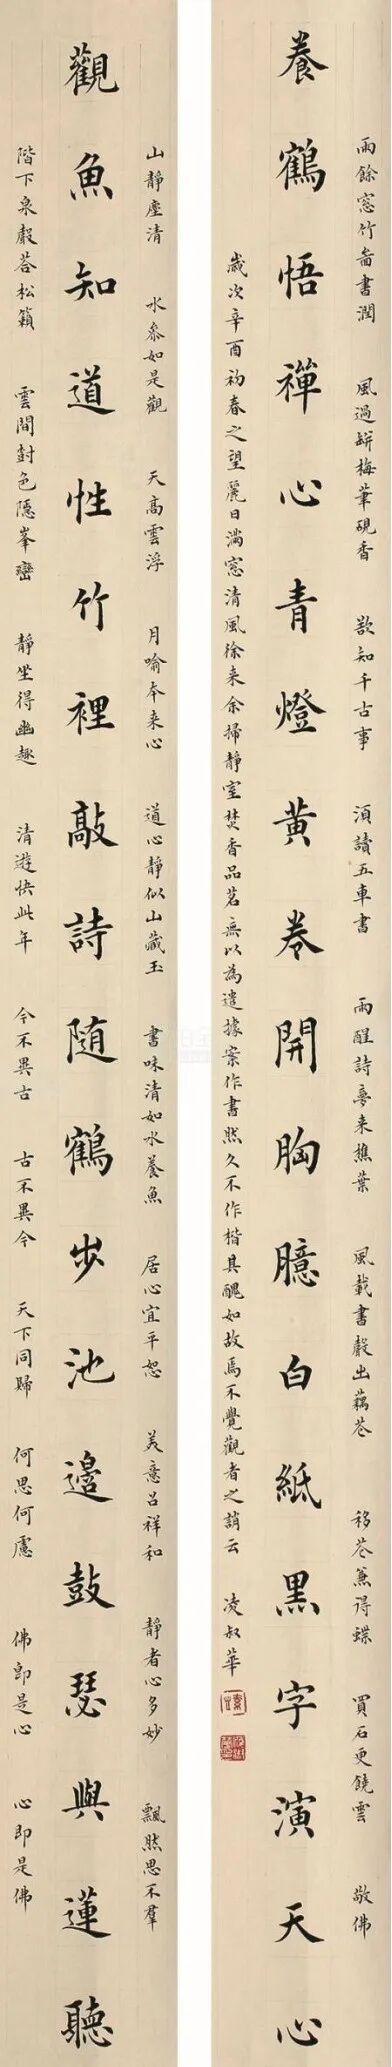 雨餘窓竹啚書潤 風過缾梅筆硯香 欲知千古事 須讀五車書 雨醒詩夢來樵葉 風載書聲出藕花 移花兼得蝶 買石更饒雲 敬佛
養鶴悟禪心青燈黃卷開胸臆白紙黑字演天心
歲次辛酉初春之望麗日滿窓清風徐來余掃靜室焚香品茗無以為遣據案作書然久不作楷其醜如故焉不覺觀者之誚云 凌叔華
山靜塵清 水參如是觀 天高雲浮 月喻本來心 道心靜似山藏玉 書味清如水養魚 居心宜平恕 美意召祥和 靜者心多妙 飄然思不羣
觀魚知道性竹裡敲詩随鶴步池邊鼓瑟與蓮聽
階下泉聲荅松籟 雲間樹色隱峯巒 靜坐得幽趣 清遊快此年 今不異古 古不異今 天下同歸 何思何慮 佛即是心 心即是佛